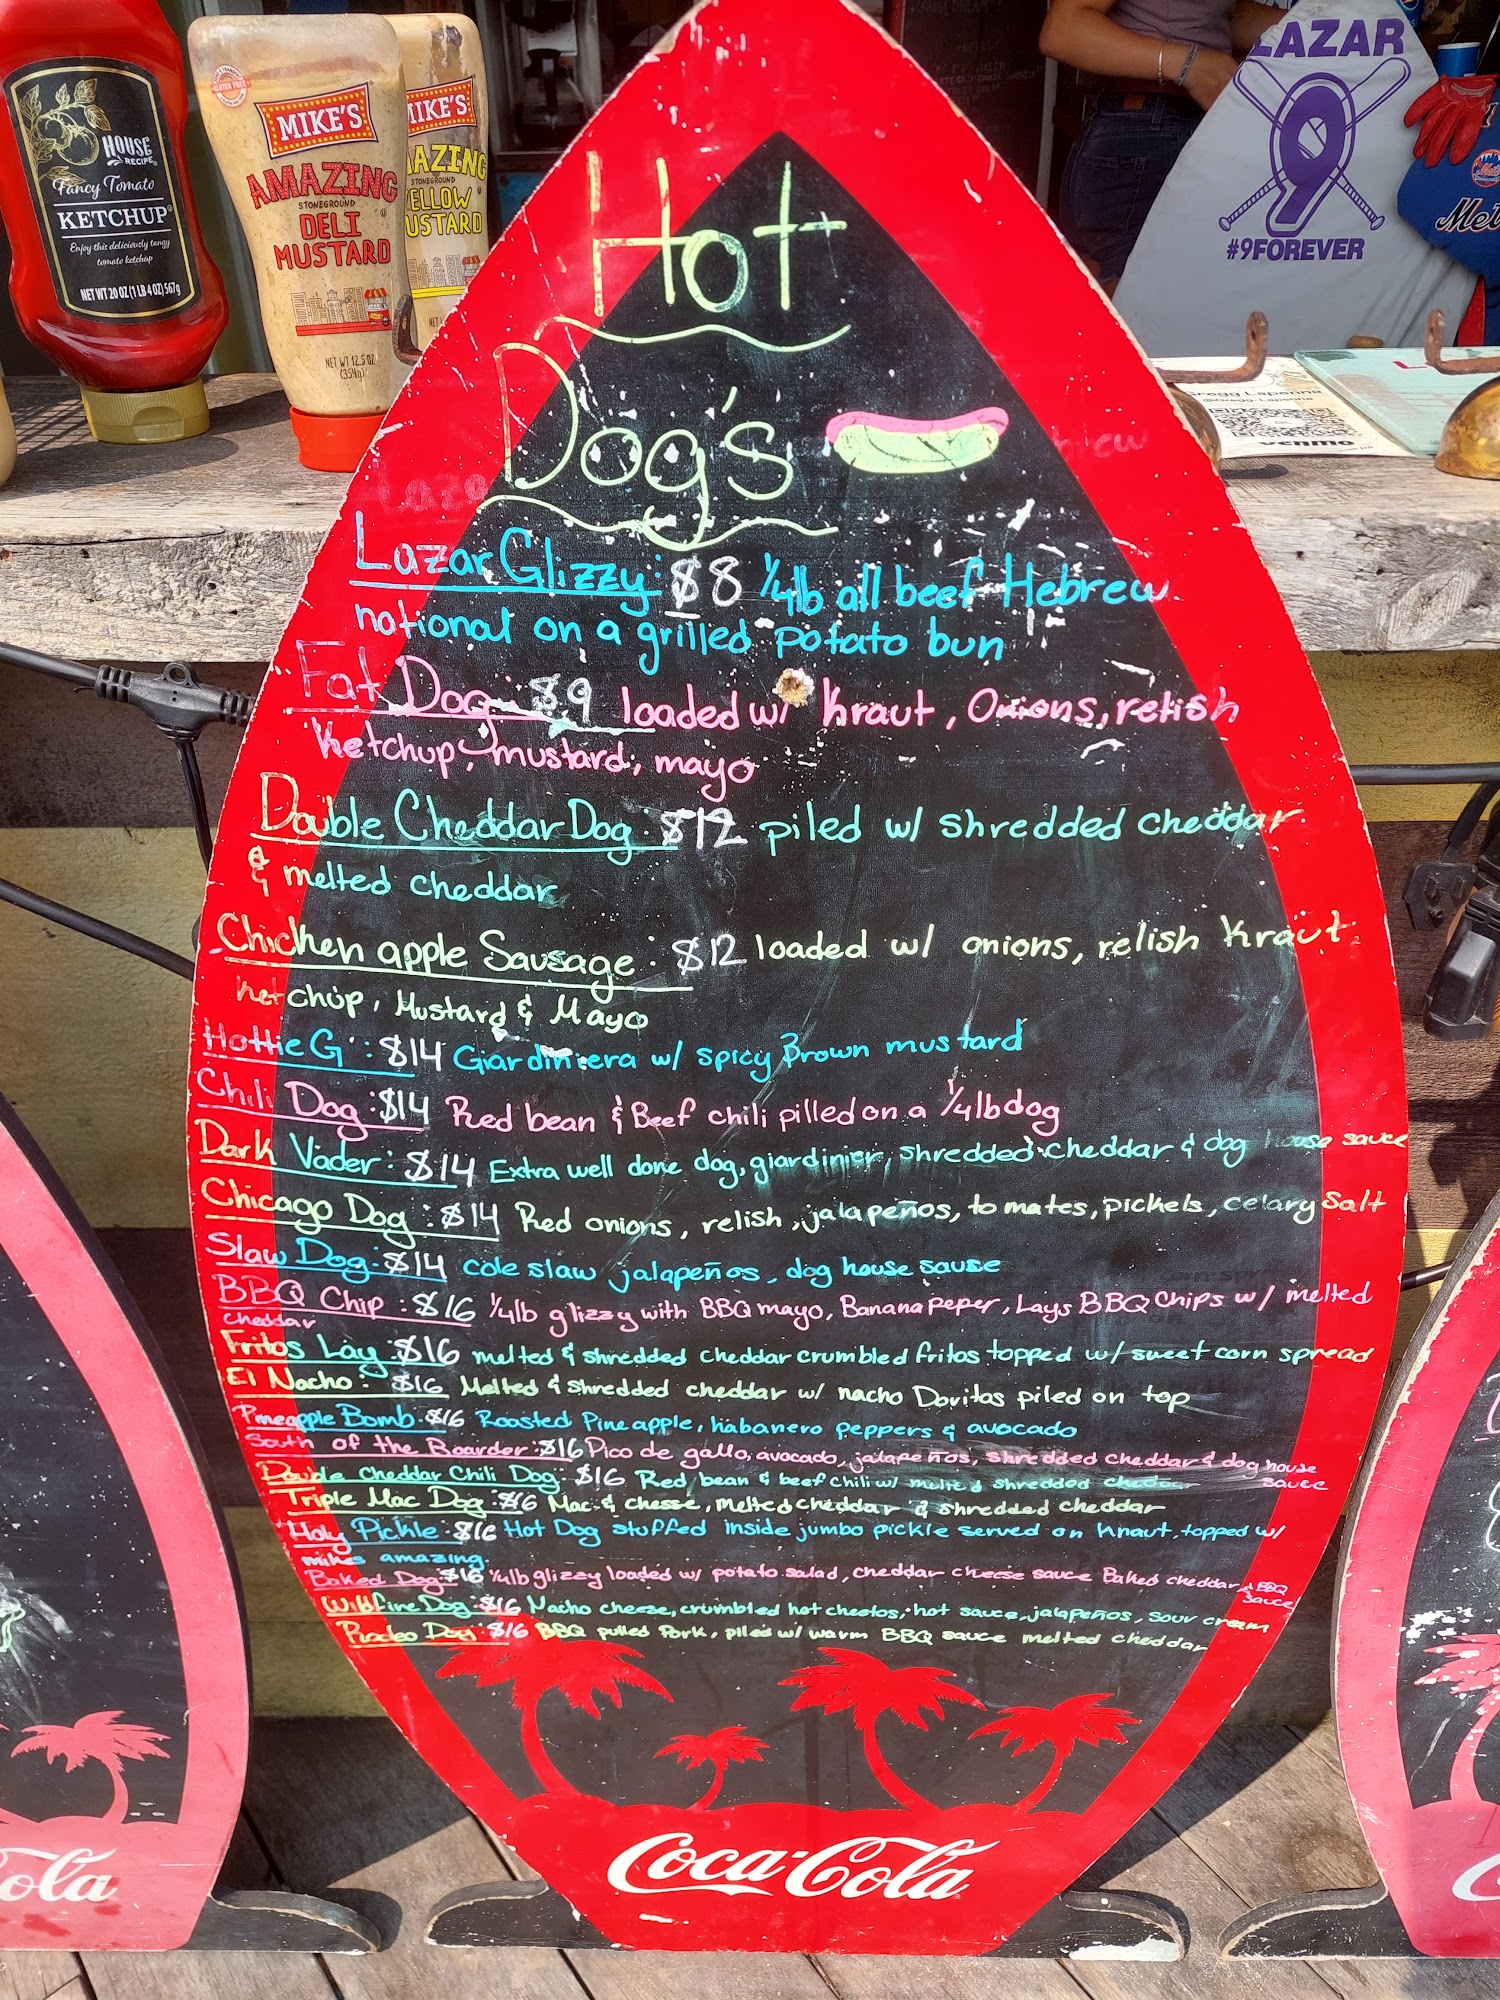 HOUSE
RECIPE
Fancy Tomato
KETCHUP
Enjoy this deliciously tangy
tomato ketchup
NET WT 20 OZ (1 LB 4 OZ) 567g
GLUTEN FREE
MIKE'S
AMAZING
STONEGROUND
DELI
MUSTARD
NET WT 12.5 OZ
(354g)
MIKE'S
AZING
STONEGROUND
ELLOW
USTARD
NET
LAZAR
9
#9FOREVER
Mets
Met
venmo
Hot
Dog's
Lazar Glizzy: $8 1/4lb all beef Hebrew
national on a grilled potato bun
Fat Dog: $9 loaded w/ Kraut, Onions, relish
Ketchup, mustard, mayo
Double Cheddar Dog: $12 piled w/ shredded cheddar
& melted cheddar
Chicken apple Sausage: $12 loaded w/ onions, relish Kraut
Ketchup, Mustard & Mayo
Hottie G: $14 Giardiniera w/ spicy Brown mustard
Chili Dog: $14 Red bean & Beef chili pilled on a 1/4lb dog
Dark Vader: $14 Extra well done dog, giardinier, shredded cheddar & dog house sauce
Chicago Dog: $14 Red onions, relish, jalapeños, tomates, pickels, celary Salt
Slaw Dog: $14 cole slaw jalapeños, dog house sauce
BBQ Chip: $16 1/4lb glizzy with BBQ mayo, Banana peper, Lays BBQ Chips w/ melted
cheddar
Fritos Lay: $16 melted & shredded cheddar crumbled fritos topped w/ sweet corn spread
El Nacho: $16 Melted & shredded cheddar w/ nacho Doritos piled on top
Pineapple Bomb: $16 Roasted Pineapple, habanero peppers & avocado
South of the Boarder: $16 Pico de gallo, avocado, jalapeños, shredded cheddar & dog house
sauce
Double Cheddar Chili Dog: $16 Red bean & beef chili w/ melted shredded cheddar
Triple Mac Dog: $16 Mac & chesse, melted cheddar & shredded cheddar
Holy Pickle: $16 Hot Dog stuffed inside jumbo pickle served on Knaut, topped w/
mikes amazing.
Baked Dog: $16 1/4lb glizzy loaded w/ potato salad, cheddar cheese sauce Baked cheddar & BBQ
sauce
Wildfire Dog: $16 Nacho cheese, crumbled hot cheetos, hot sauce, jalapeños, sour cream
Rodeo Dog: $16 BBQ pulled Pork, piled w/ warm BBQ sauce melted cheddar
Coca-Cola
ola